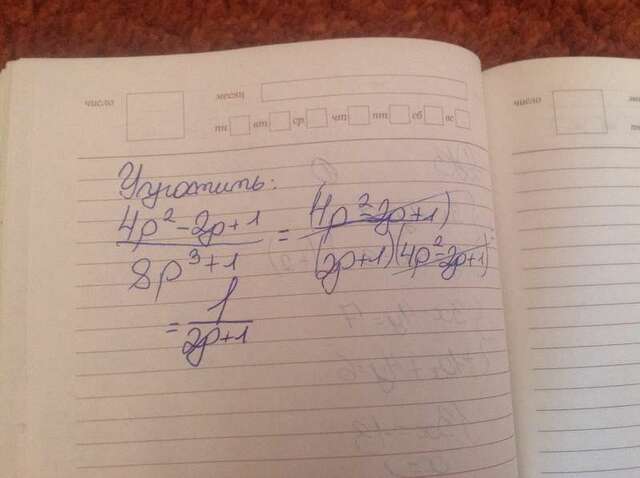 число месяц
пн вт ср чт пт сб вс
Упростить:
4p² - 2p + 1 / 8p³ + 1 = (4p² - 2p + 1) / (2p + 1)(4p² - 2p + 1)
= 1 / 2p + 1
число
пн